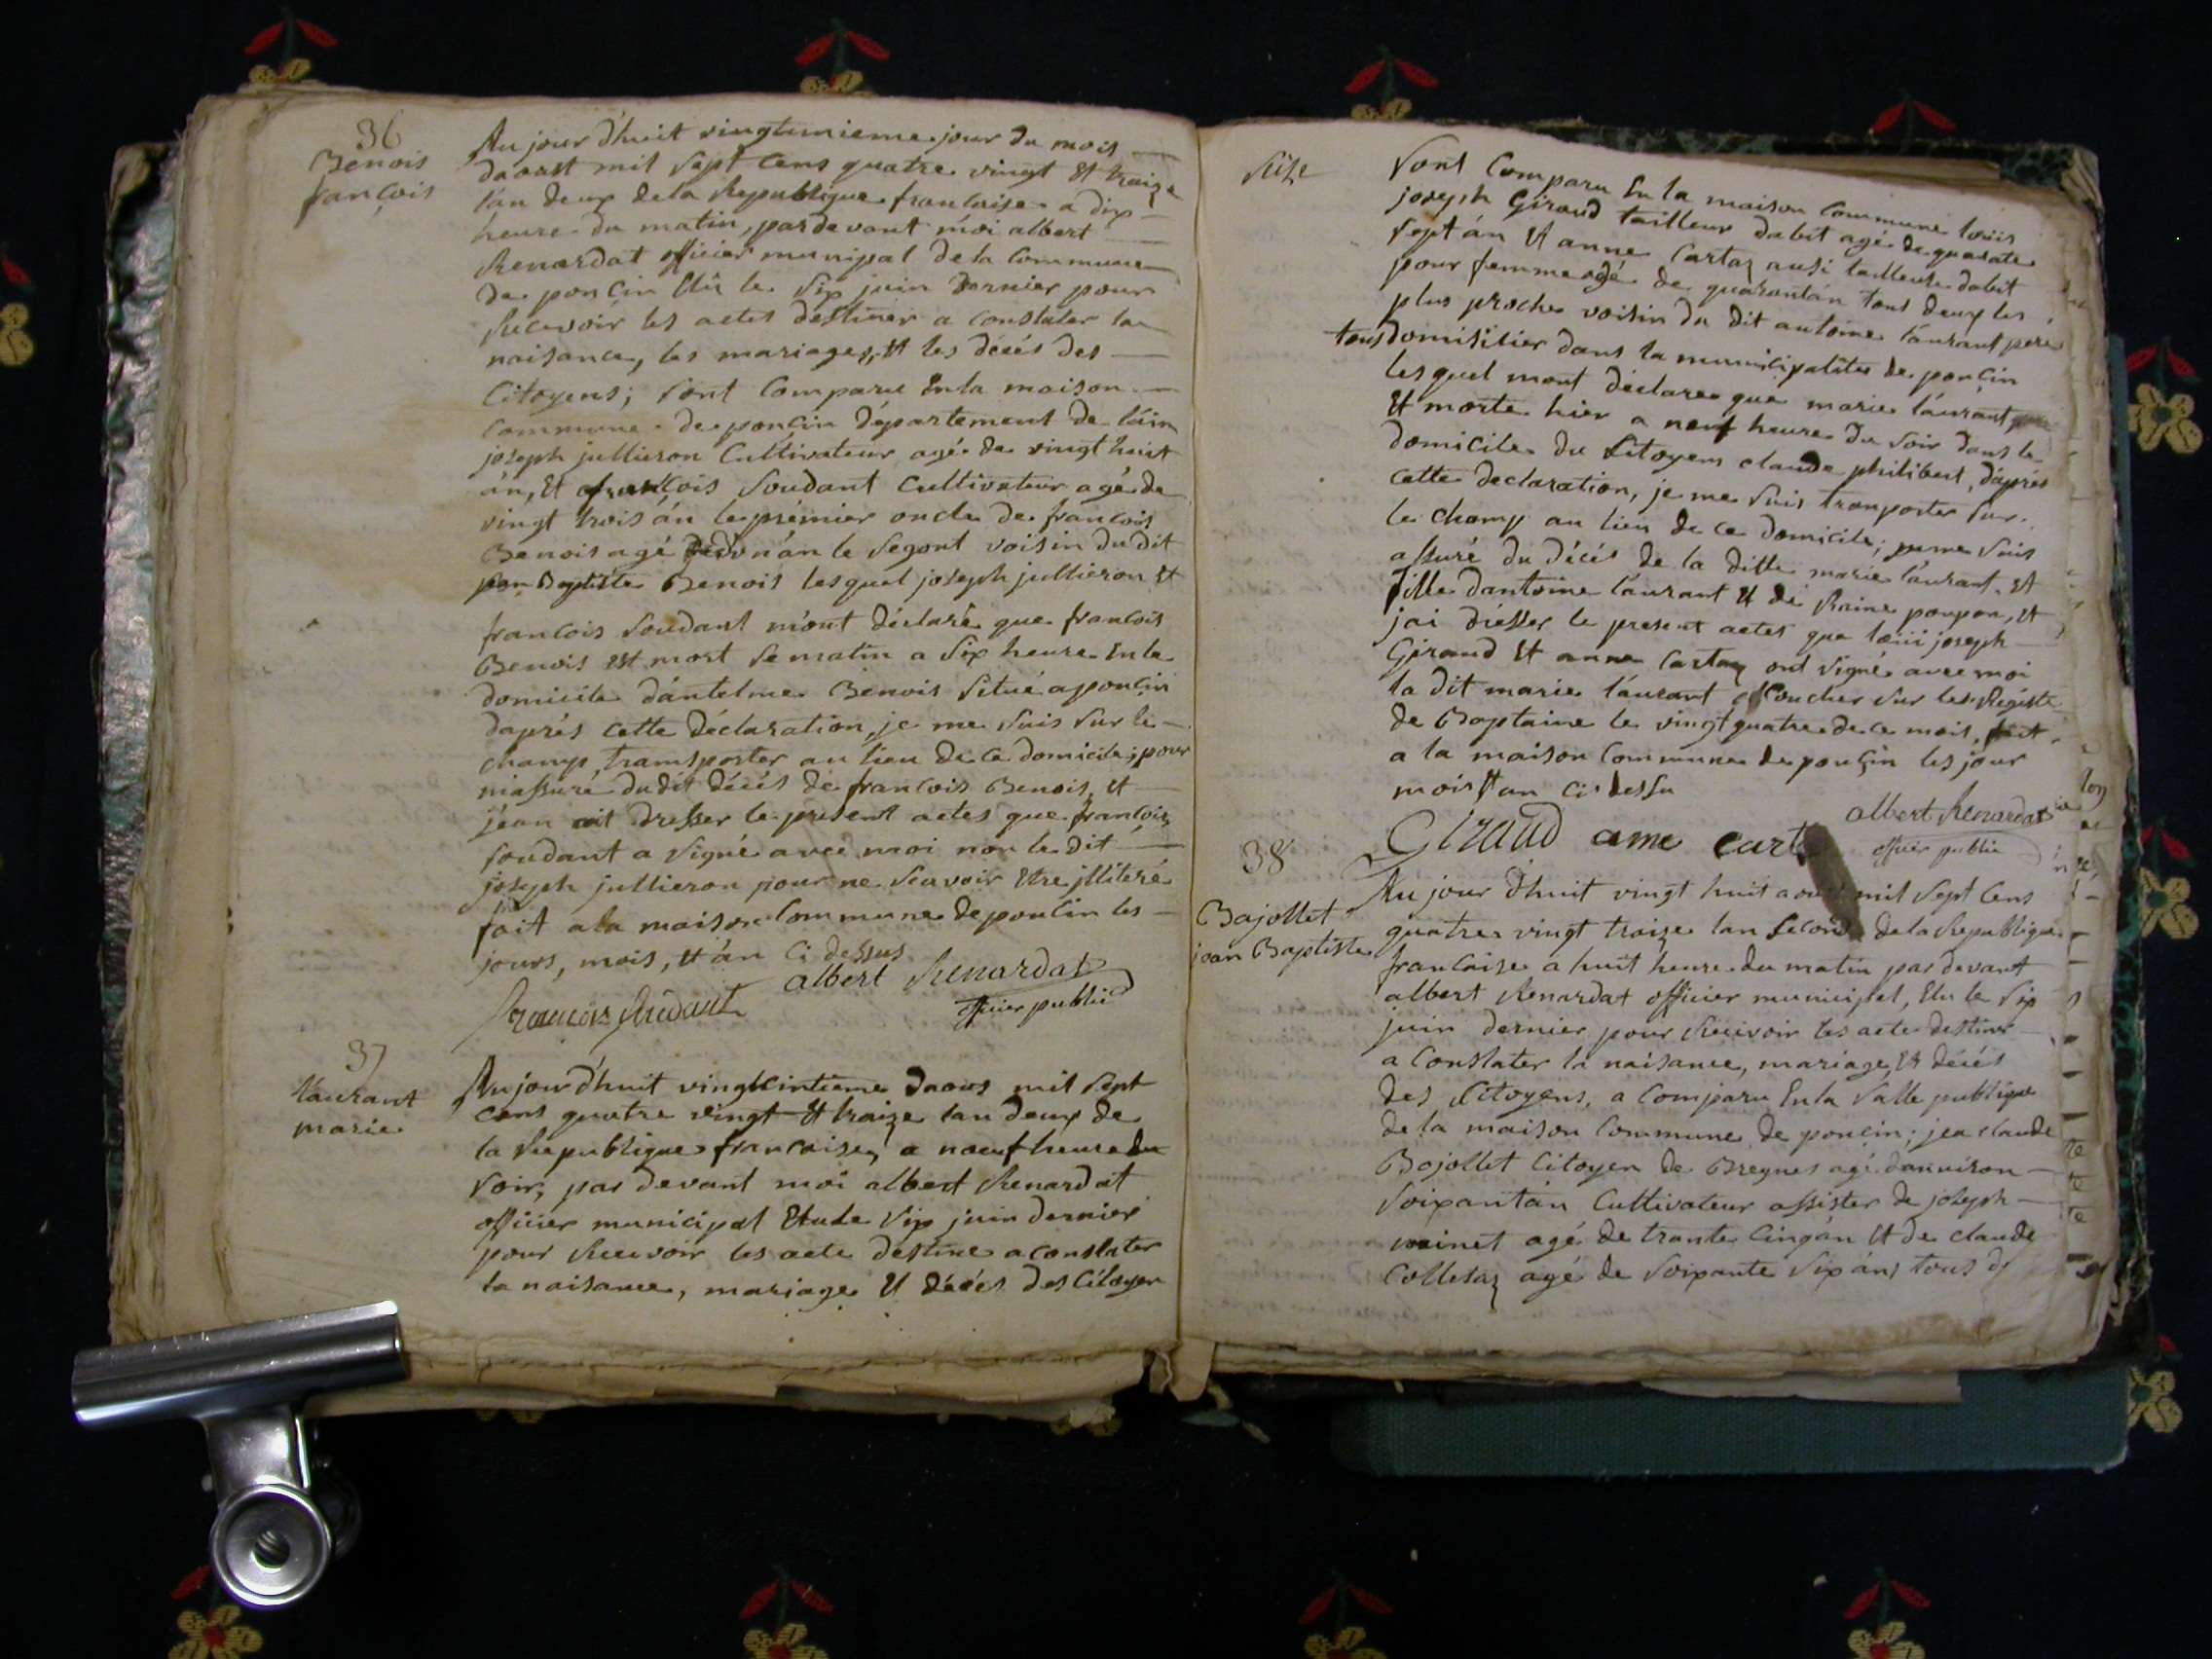 36
Benois
françois
Au jour d'huit vingtunieme jour du mois
daoust mil sept cens quatre vingt Et traize
lan deux dela Republique francaise a dix
heure du matin, pardevant moi albert
Renardat officier munipal dela Commune
de poncin Elû le six juin dernier pour
Recevoir les actes destiner a constater la
naisance, les mariages, Et les décés des
Citoyens; sont Comparu En la maison
commune de poncin Département de láin
joseph jullieron Cultivateur agé de vingt huit
án, Et francois soudant cultivateur agé de
vingt trois án le premier oncle de francois
Benois agé d'un án le segont voisin du dit
Baptiste Benois lesquel joseph jullieron Et
francois soudant m'ont déclaré que francois
Benois est mort se matin a six heure En le
domicile dántelme Benois situé a poncin
daprés cette déclaration, je me suis sur le
champ transporter au lieu de ce domicile, pour
massuré dudit décés de francois Benois, Et
jéan ait dresser le present actes que francois
soudant a signé avec moi non le dit
joseph jullieron pour ne scavoir Etre jlliteré
fait a la maison Commune de poncin les
jours, mois, Et án Ci dessus
albert Renardat
officier public
francois Sudant
37
laurant
marie
Au jour d'huit vingtcintieme daous mil sept
cens quatre vingt Et traize lan deux de
la Republique francaise, a neuf heure du
soir, par devant moi albert Renardat
officier municipal Elu le six juin dernier
pour Recevoir les acte destine a constater
la naisance, mariage Et décés des Citoyen
suite
sont Comparu En la maison Commune louis
joseph Giraud tailleur dabit agé de quarate
sept án Et anne Cartaz ausi tailleuse dabit
pour femme agé de quarantán tous deux les
plus proche voisin du dit antoine láurant pere
tous domisilier dans la municipalites de poncin
lesquel mont déclares que marie láurant
Et morte hier a neuf heure du soir dans le
domicile du Citoyen claude philibert, dáprés
cette declaration, je me suis tranporter sur
le champ au lieu de ce domicile; je me suis
assuré du décés de la ditte marie láurant. Et
fille dantoine láurant Et de Raine poupon, Et
jai drésser le present actes que loüi joseph
Giraud Et anne Cartaz ont signé avec moi
la dit marie láurant coucher sur les Régiste
de Baptaine le vingt quatre de ce mois, fait
a la maison Commune de poncin les jour
mois Et an Ci dessu
albert Renardat
officier public
Giraud ane cart
38
Bajollet
jean Baptiste
Au jour d'huit vingt huit aoust mil sept Cens
quatre vingt traize lan second de la Republique
francaise a huit heure du matin par devant
albert Renardat officier municipal, Elu le six
juin dernier pour Recivoir les acte destiner
a Constater la naisance, mariage, Et décés
des Citoyens, a comparu En la salle publique
de la maison Commune de poncin; jea claude
Bajollet Citoyen de Bregnes agé danviron
soixantán Cultivateur assister de joseph
agé de trante Cinq án Et de claude
Colletaz agé de soixante six án, tous d